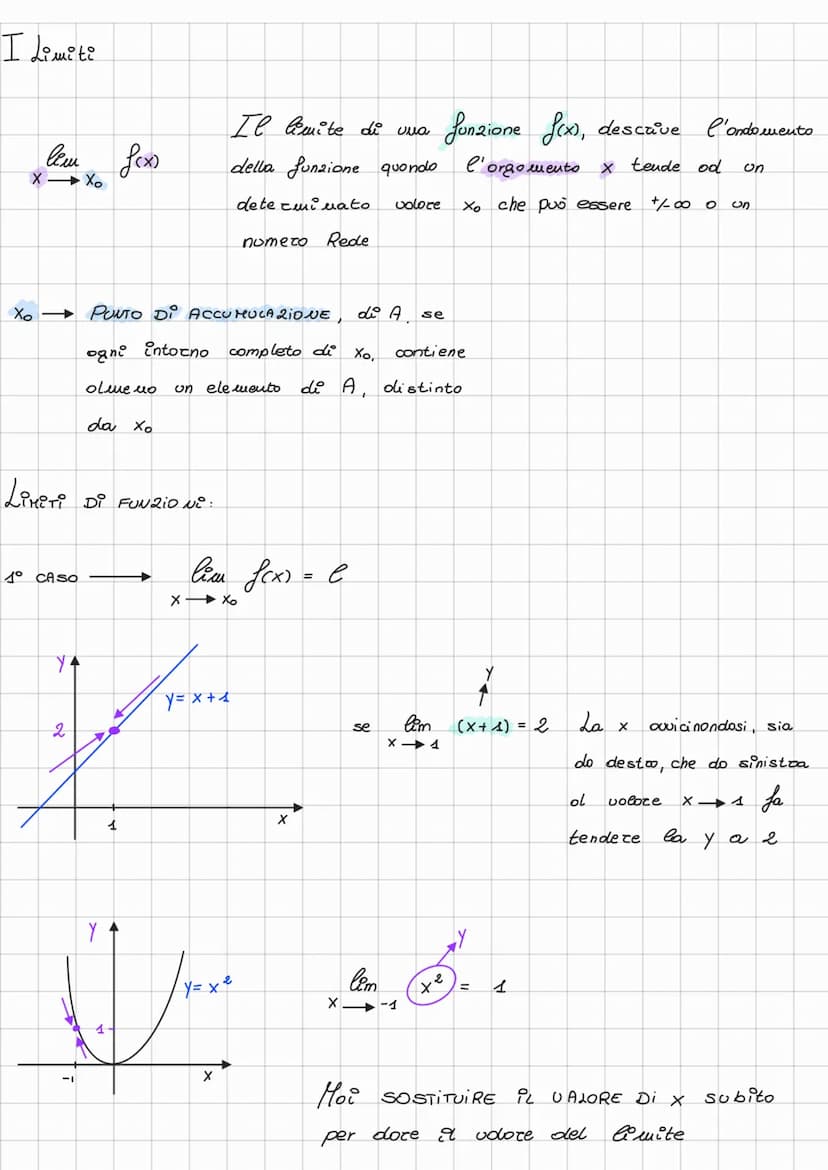 I Limiti
lim f(x)
x → x₀
Il limite di una funzione f(x), descrive l'andamento
della funzione quando l'argomento x tende ad un
determinato valore x₀ che può essere +/-∞ o un
numero Reale
x₀ → PUNTO DI ACCUMULAZIONE, di A, se
ogni intorno completo di x₀, contiene
almeno un elemento di A, distinto
da x₀
LIMITI DI FUNZIONI:
1° CASO → lim f(x) = l
x → x₀
y
y = x + 1
2
1
x
y
se lim (x + 1) = 2 La x avvicinandosi, sia
x → 1
da destra, che da sinistra
al valore x → 1 fa
tendere la y a 2
y
y = x²
1
-1
x
y
lim x² = 1
x → -1
Mai SOSTITUIRE IL VALORE DI x subito
per dare il valore del limite